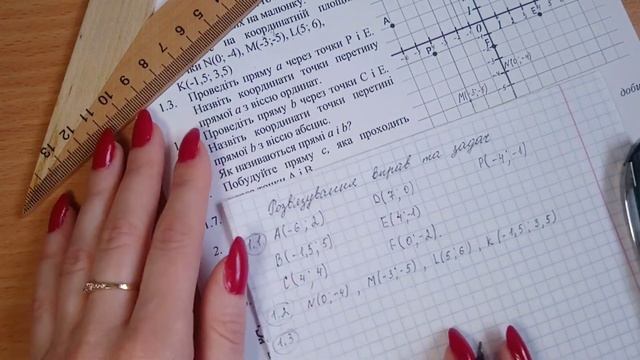 них на малюнку.
на координатній площ
ки N(0; -4), M(-3;-5), L(5; 6),
K(-1,5; 3,5)
1.3. Проведіть пряму a через точки P і E.
Назвіть координати точки перетину
прямої a з віссю ординат.
Проведіть пряму b через точки C і E.
Назвіть координати точки перетину
прямої b з віссю абсцис.
Як називаються прямі a і b?
Побудуйте пряму c, яка проходить
1.7.
2.
A
P
E
F
0
N(0; -4)
M(-3; -5)
13 12 11 10 9 8 7 6 5 4 3 2
Розв'язування вправ та задач
1.1 A(-6; 2) D(7; 0) P(-4; -1)
B(-1,5; 5) E(4; -1)
C(4; 4) F(0; -2).
1.2 N(0; -4), M(-3; -5), L(5; 6), K(-1,5; 3,5)
1.3